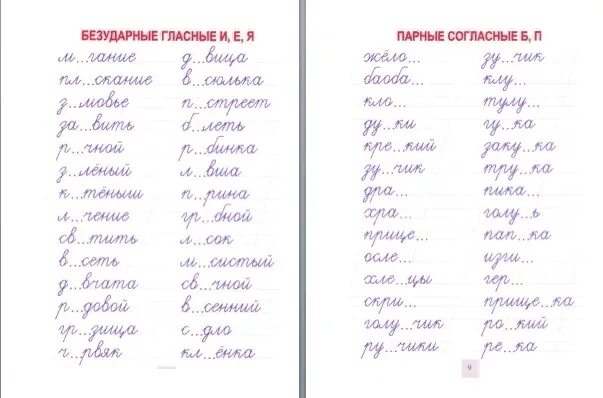 БЕЗУДАРНЫЕ ГЛАСНЫЕ И, Е, Я
м...гание д...вица
пл...скание в...сюлька
з...мовье п...стреет
за...вить б...леть
р...чной р...бинка
з...лёный л...вша
к...тёныш п...рина
л...чение гр...бной
св...тить л...сок
в...сеть м...систый
д...вчата св...чной
р...довой в...сенний
гр...зища с...дло
ч...рвяк кл...ёнка
ПАРНЫЕ СОГЛАСНЫЕ Б, П
жёло... зу...чик
баоба... клу...
кло... тулу...
ду...ки гу...ка
кре...кий заку...ка
зу...чик тру...ка
дра... пика...
хра... голу...ь
прице... пап...ка
осле... изги...
хле...цы гер...
скри... прище...ка
голу...чик ро...кий
ру...чики ре...ка
9